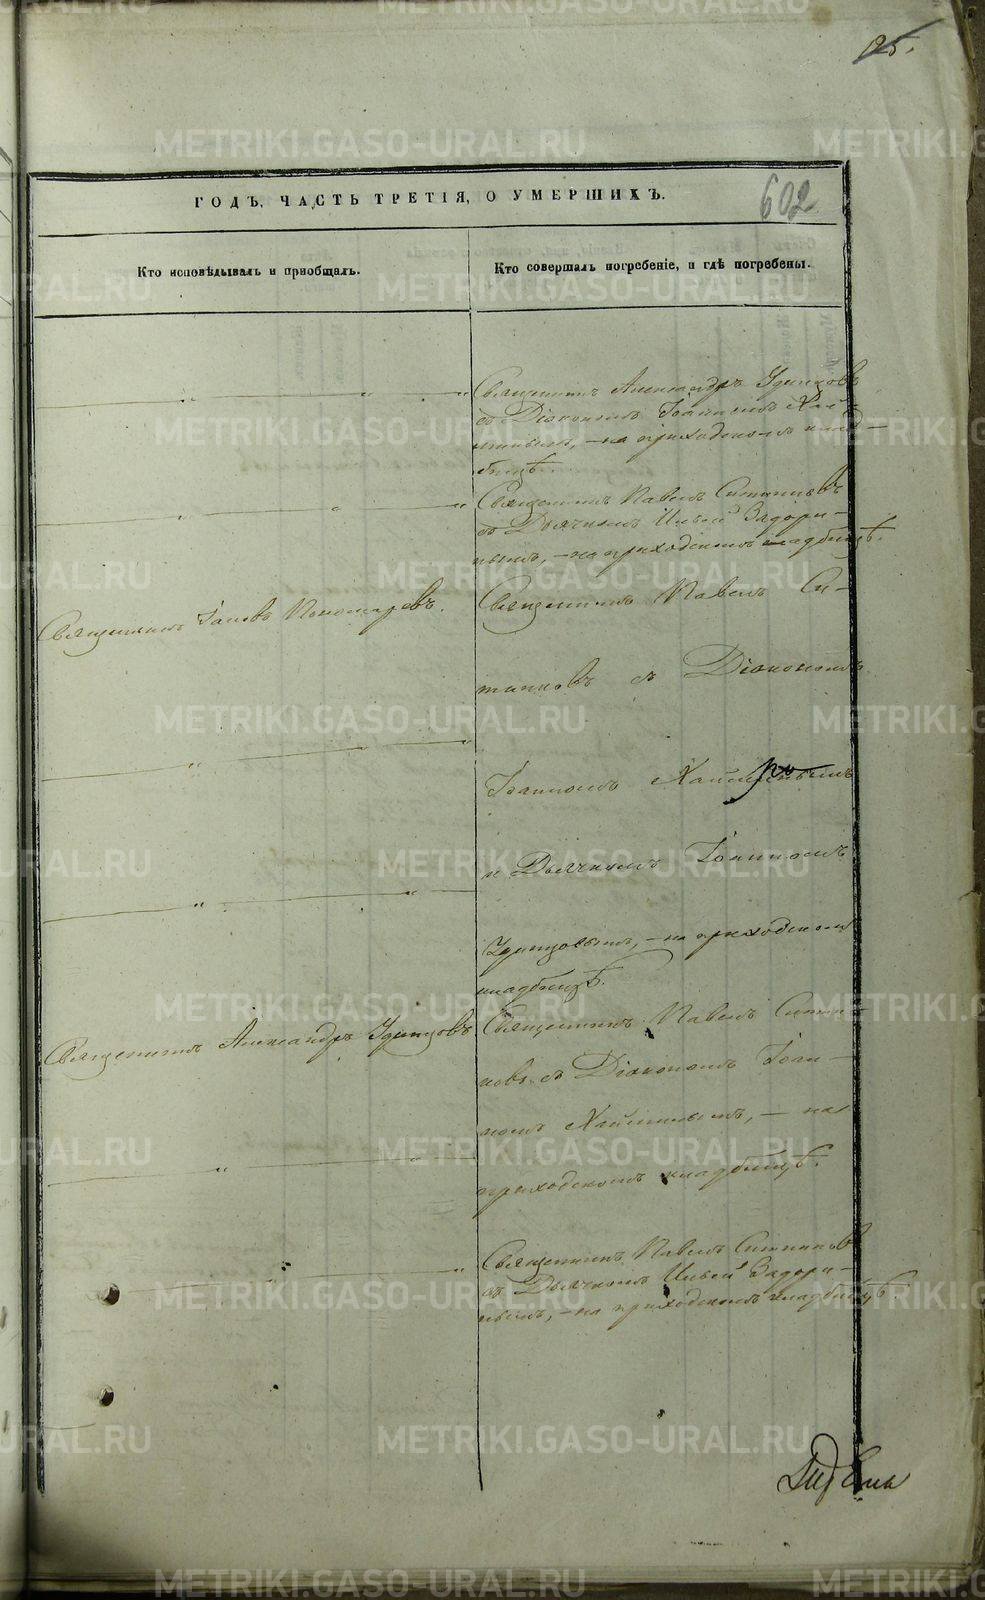 125.
602
ГОДЪ, ЧАСТЬ ТРЕТІЯ, О УМЕРШИХЪ.
Кто исповѣдывалъ и приобщалъ.
Кто совершалъ погребеніе, и гдѣ погребены.
Священникъ Александръ Удинцовъ
съ Діакономъ Іоанномъ Хай-
миннымъ, – на приходскомъ клад-
бищѣ.
Священникъ Павелъ Ситниковъ
съ Дьячкомъ Ильей Задори-
нымъ, – на приходскомъ кладбищѣ.
Священникъ Іаковъ Пономаревъ.
Священникъ Павелъ Си-
тниковъ съ Діакономъ
Іоанномъ
и Дьячкомъ Іоанномъ
Удинцовымъ, – на приходскомъ
кладбищѣ.
Священникъ Александръ Удинцовъ
Священникъ Павелъ Ситни-
ковъ съ Діакономъ Іоан-
номъ – на
приходскомъ кладбищѣ.
Священникъ Павелъ Ситниковъ
съ Дьячкомъ Ильей Задори-
нымъ, – на приходскомъ кладбищѣ.
METRIKI.GASO-URAL.RU